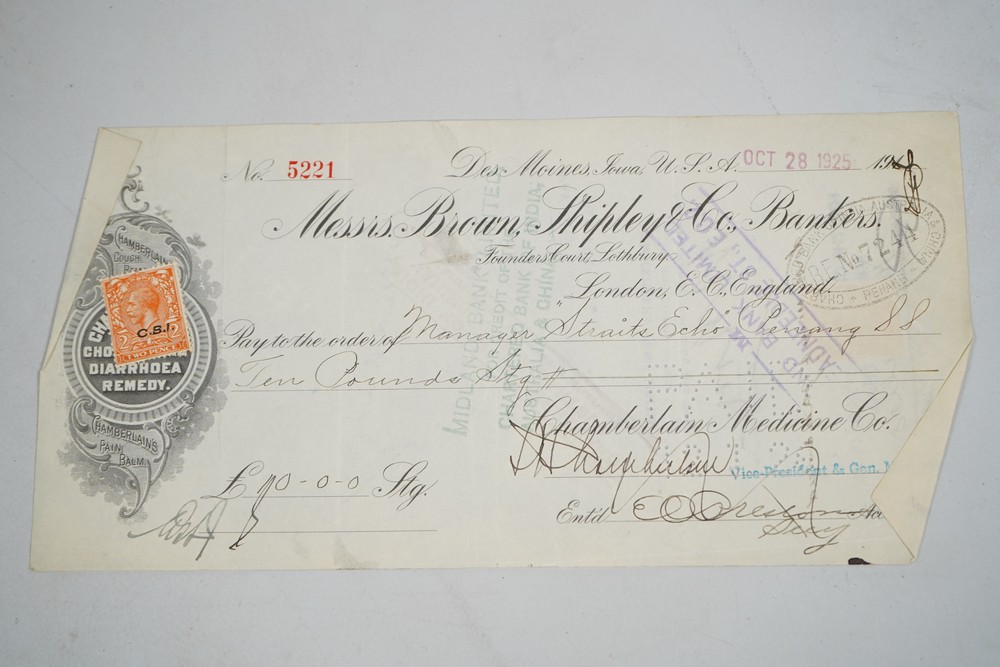 No. 5221
Des Moines, Iowa, U.S.A. OCT 28 1925 192
Messrs. Brown, Shipley & Co., Bankers.
Founders Court, Lothbury,
London, E. C., England.
Pay to the order of Manager "Straits Echo" Penang SS
Ten Pounds Stg
Chamberlain Medicine Co.
Vice-President & Gen.
£ 10-0-0 Stg.
Ent'd
Secy
CHAMBERLAIN'S
COUGH
DIARRHOEA
REMEDY.
CHAMBERLAIN'S
PAIN
BALM
C.B.I.
TWO PENCE
BE No 7244
PENANG
MIDLAND BANK LIMITED
CREDIT OF THE
CHARTERED BANK OF INDIA,
AUSTRALIA & CHINA